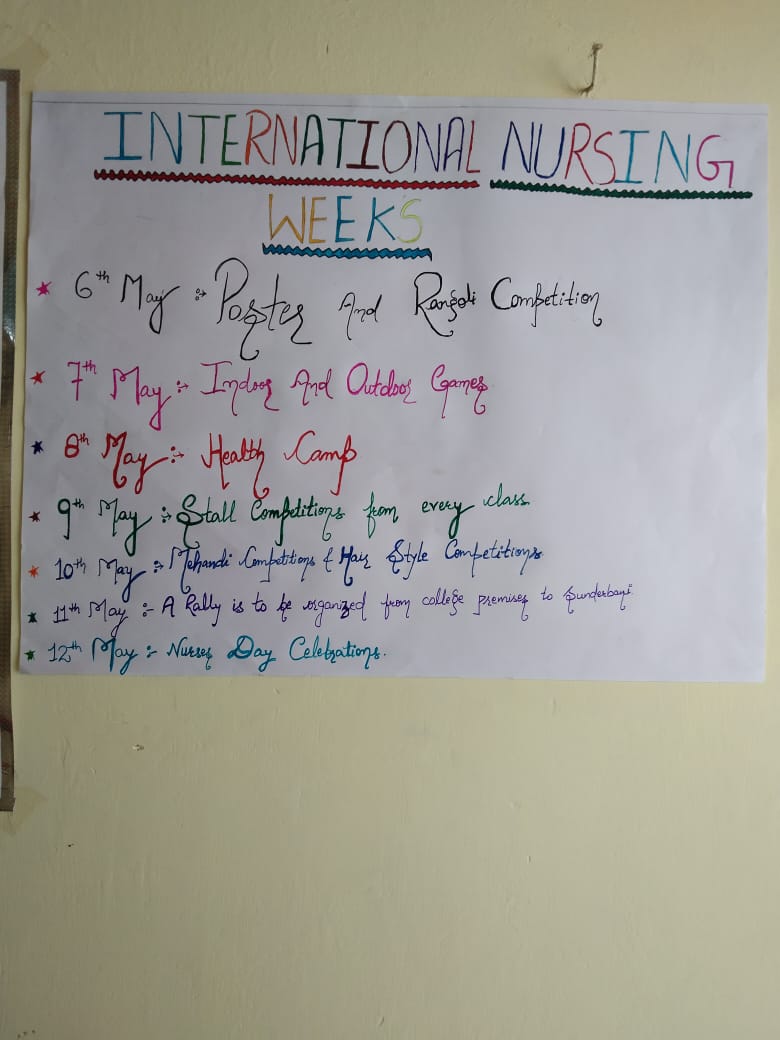 INTERNATIONAL NURSING
WEEKS
6th May :- Poster And Rangoli Competition
7th May :- Indoor And Outdoor Games
8th May :- Health Camp
9th May :- Stall Competitions from every class
10th May :- Mehandi Competitions & Hair Style Competitions
11th May :- A Rally is to be organized from college premises to Sunderbani.
12th May :- Nurses Day Celebrations.